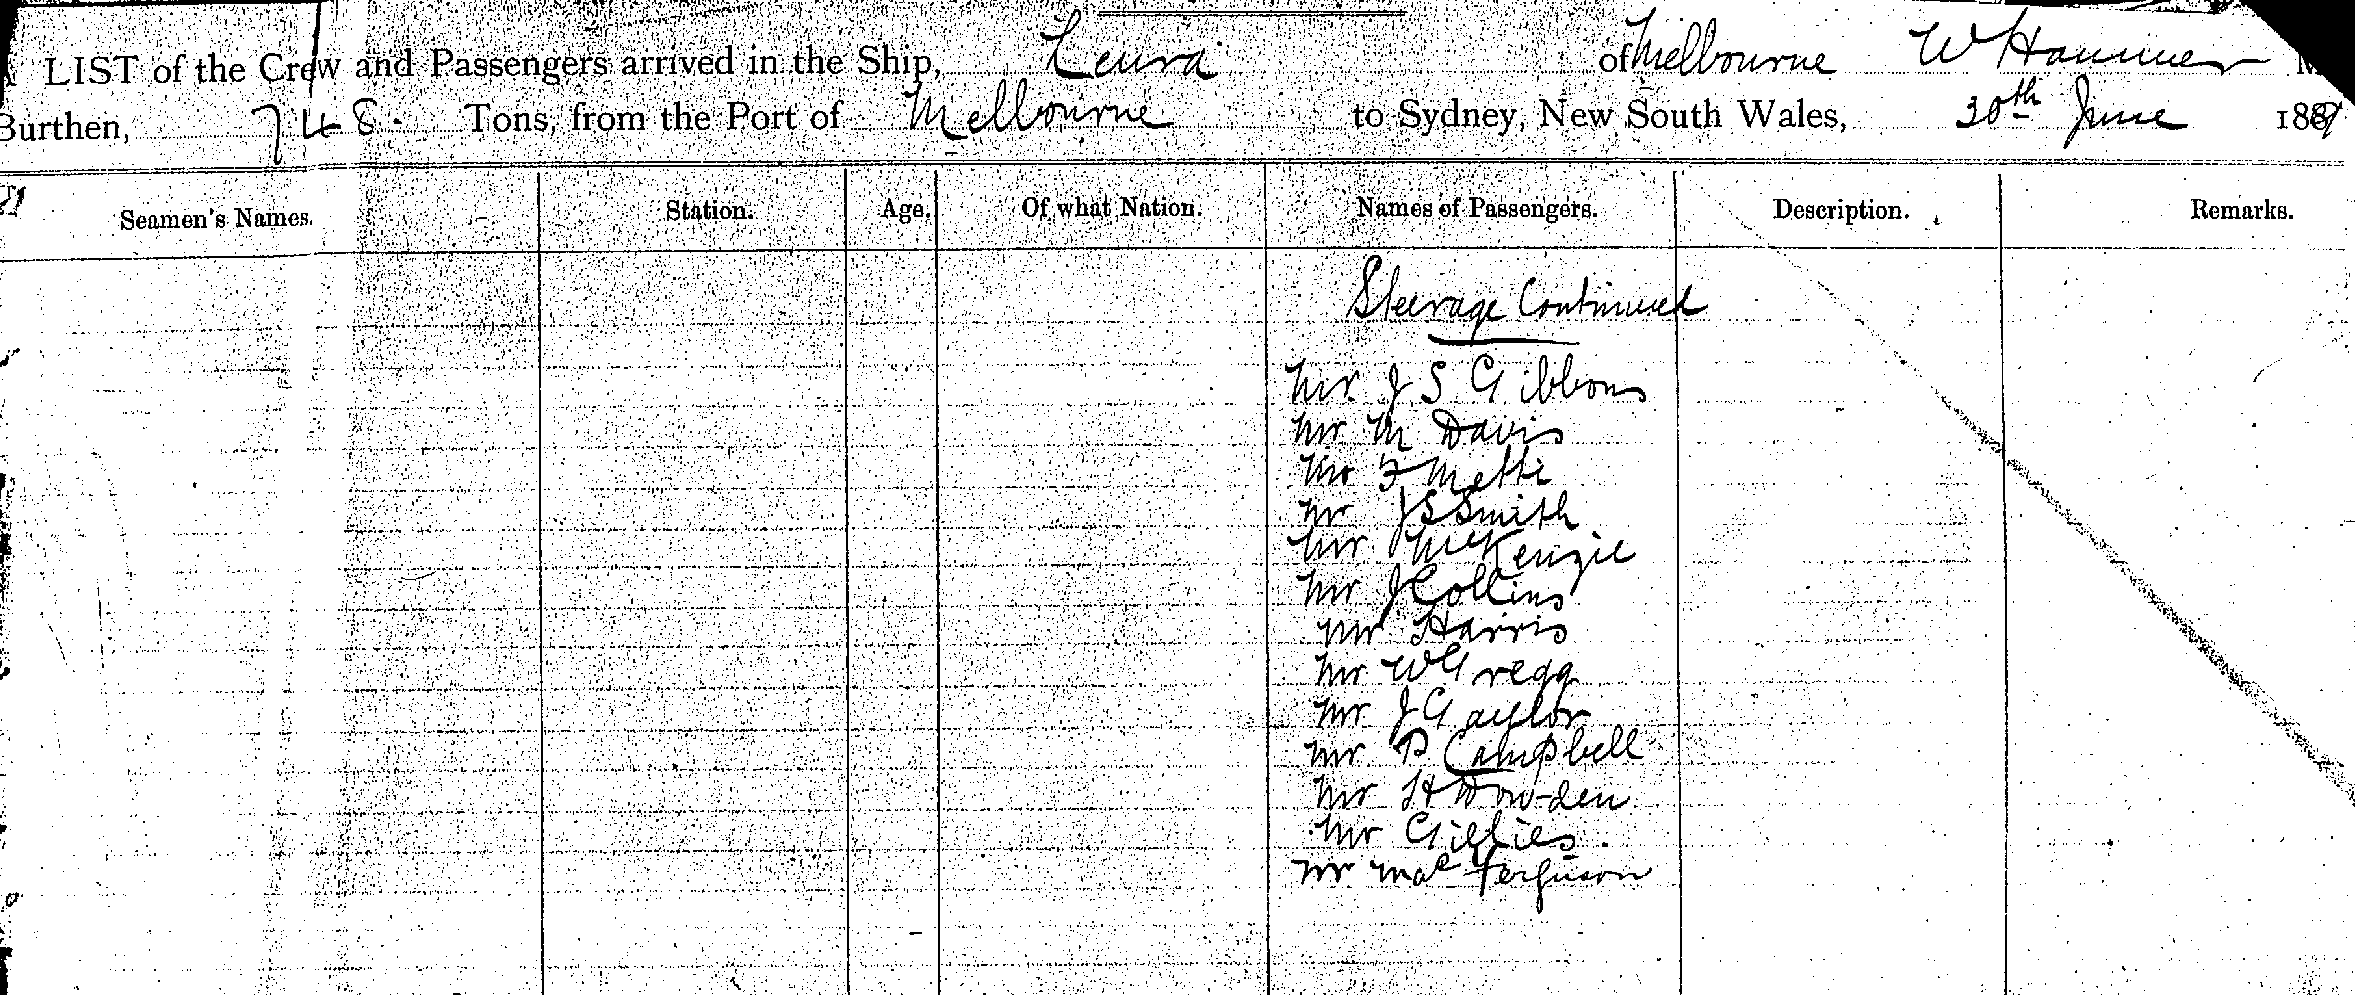 LIST of the Crew and Passengers arrived in the Ship, Leura of Melbourne W Hammer
Burthen, 748. Tons, from the Port of Melbourne to Sydney, New South Wales, 30th June 188
Seamen's Names. Station. Age. Of what Nation. Names of Passengers. Description. Remarks.
Steerage Continued
Mr. J S Gibbons
Mr M Davis
Mr F
Mr J S Smith
Mr McKenzie
Mr J Collins
Mr Harris
Mr W Gregg
Mr J Gaylor
Mr P Campbell
Mr H Dowden
Mr Gillies.
Mr Mac Ferguson